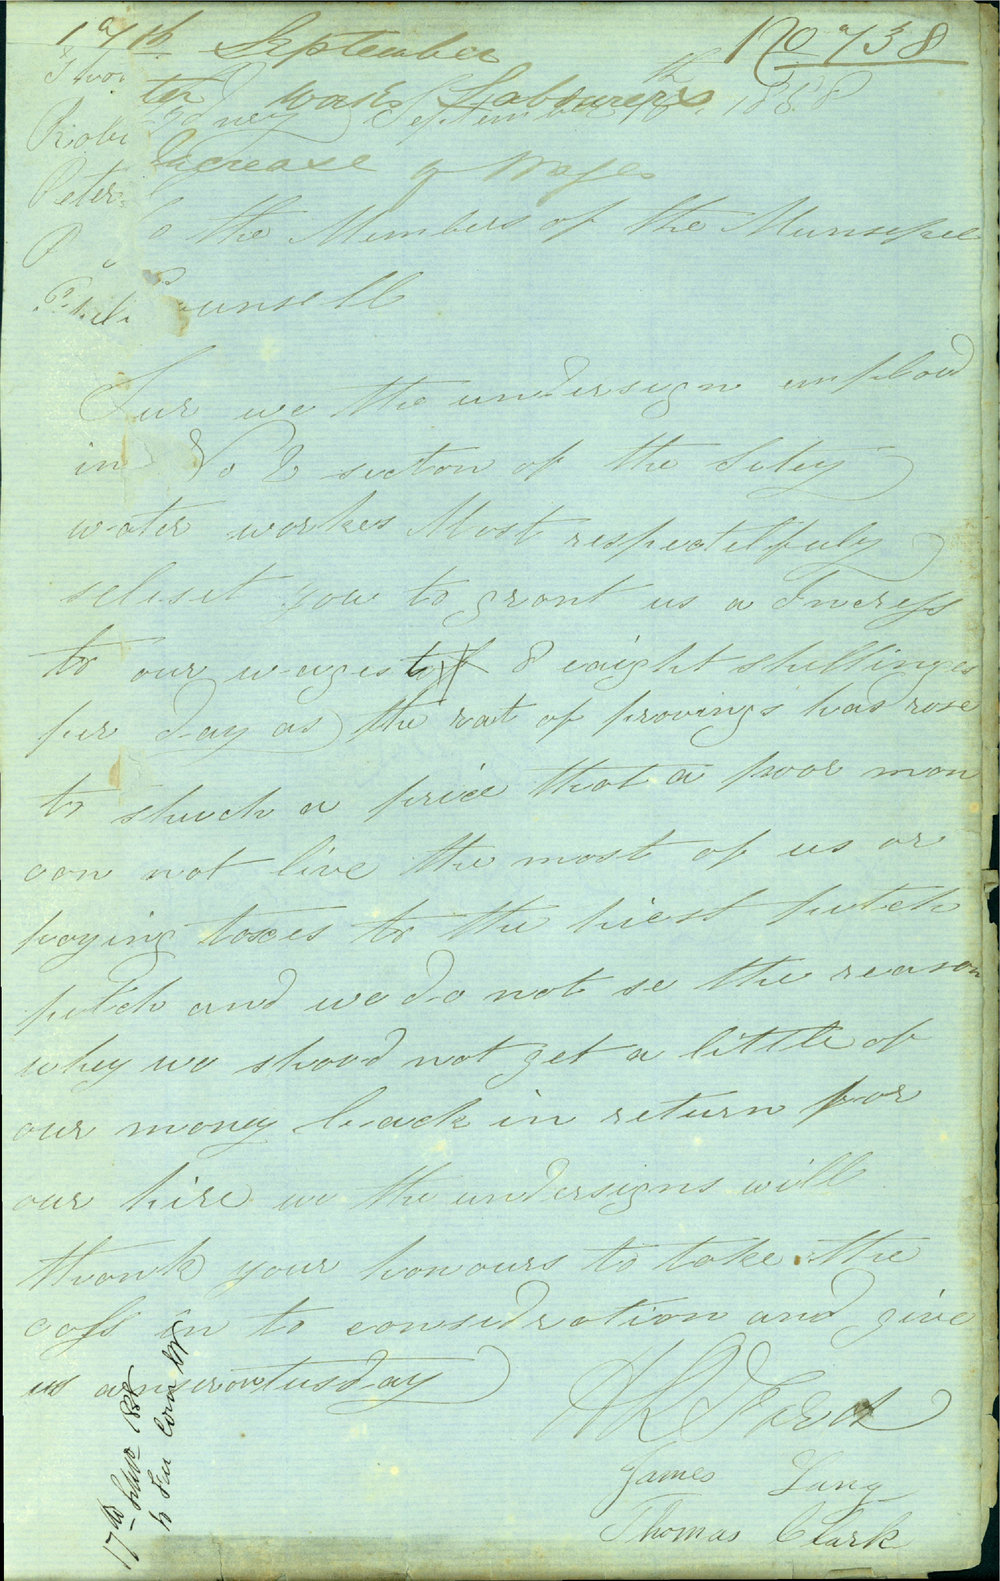 17th September No 738
Water Works Labourers
Sydney September 16th 1858
Increase of Wages
To the Members of the Munsepel
Counsell
Sur we the undersign imploid
in No 2 section of the Sitey
water workes Most respectelfuly
selisit you to grant us a Incress
to our wages to 8 eaight shillinges
per day as the rat of provings has rose
to shuch a price that a poor man
can not live the most of us or
paying taxes to the hiest putch
putch and we do not se the reason
whey we shood not get a little of
our money back in return for
our hire we the undersigns will
thank your honours to take the
cass in to consideration and give
us answer on tusday
James Lang
Thomas Clark
17th Septr 1858
Peter